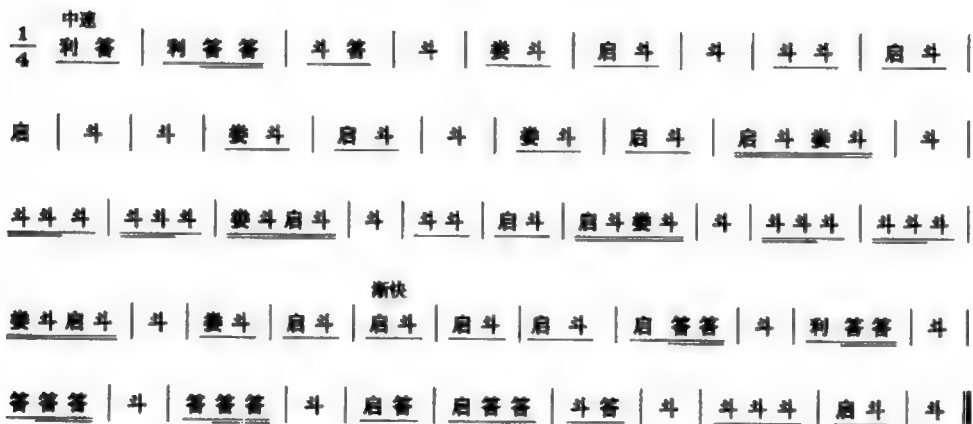 中速
1/4 利 答 | 利 答 答 | 斗 答 | 斗 | 娄 斗 | 启 斗 | 斗 | 斗 斗 | 启 斗 |
启 | 斗 | 斗 | 娄 斗 | 启 斗 | 斗 | 娄 斗 | 启 斗 | 启 斗 娄 斗 | 斗 |
斗 斗 斗 | 斗 斗 斗 | 娄 斗 启 斗 | 斗 | 斗 斗 | 启 斗 | 启 斗 娄 斗 | 斗 | 斗 斗 斗 | 斗 斗 斗 |
渐快
娄 斗 启 斗 | 斗 | 娄 斗 | 启 斗 | 启 斗 | 启 斗 | 启 斗 | 启 答 答 | 斗 | 利 答 答 | 斗 |
答 答 答 | 斗 | 答 答 答 | 斗 | 启 答 | 启 答 答 | 斗 答 | 斗 | 斗 斗 斗 | 启 斗 | 斗 ‖